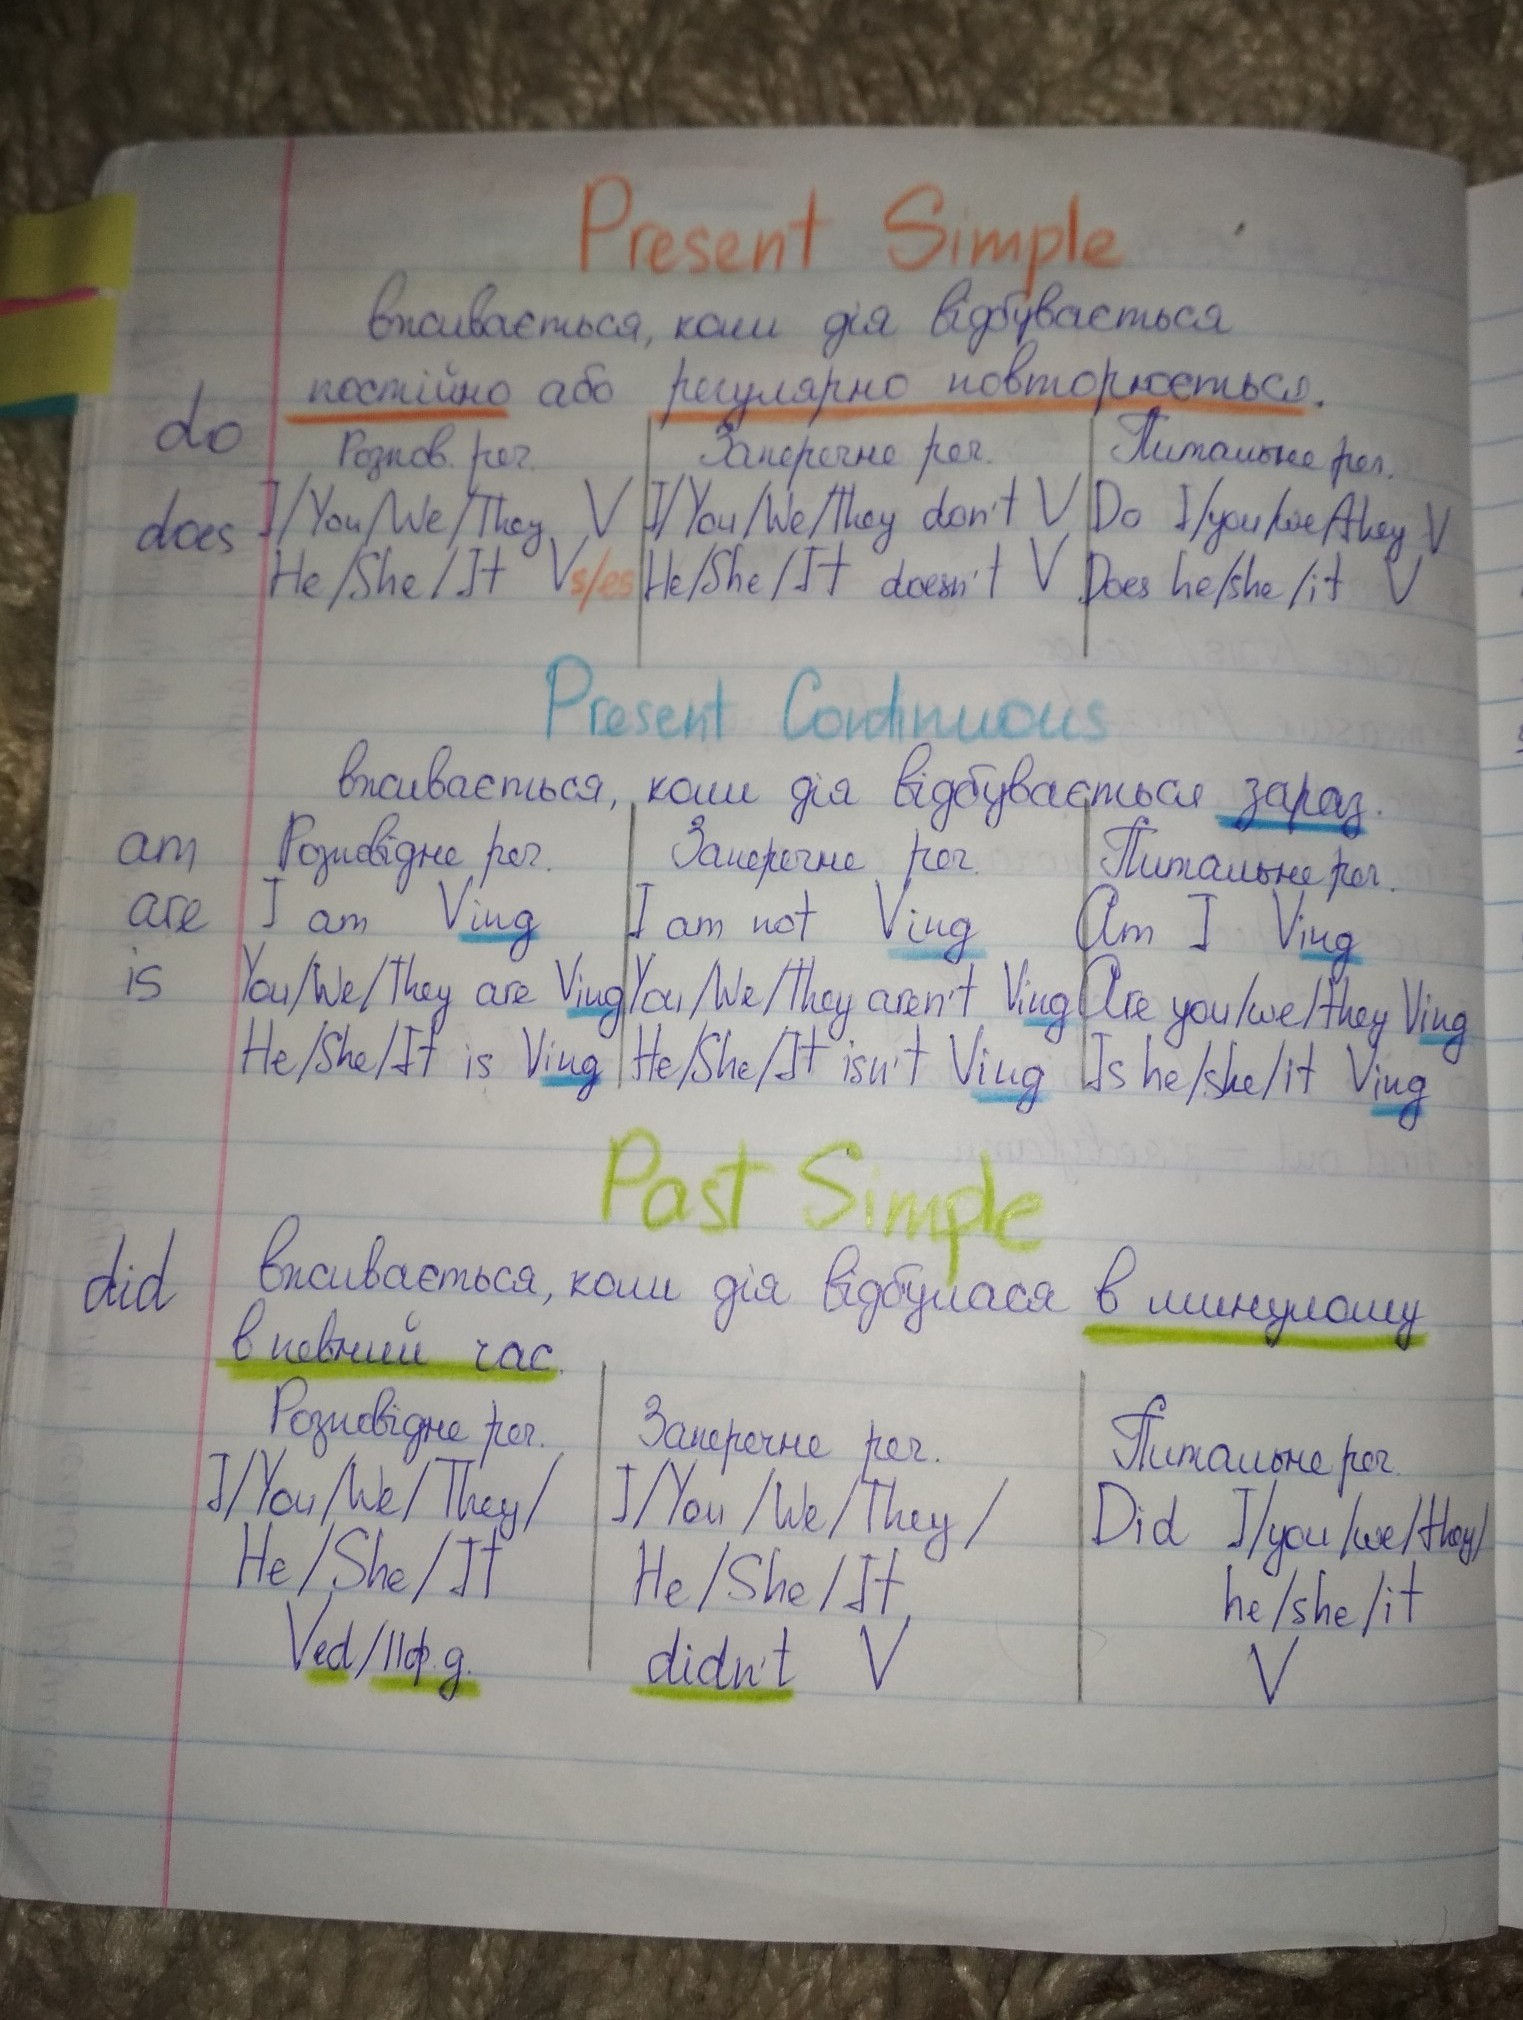 Present Simple
вживається, коли дія відбувається
постійно або регулярно повторюється.
do
Розпов. реч. Заперечне реч. Питальне реч.
does I/You/We/They V I/You/We/They don't V Do I/you/we/they V
He/She/It Vs/es He/She/It doesn't V Does he/she/it V
Present Continuous
вживається, коли дія відбувається зараз.
am Розповідне реч. Заперечне реч. Питальне реч.
are I am Ving I am not Ving Am I Ving
is You/We/They are Ving You/We/They aren't Ving Are you/we/they Ving
He/She/It is Ving He/She/It isn't Ving Is he/she/it Ving
Past Simple
did вживається, коли дія відбулася в минулому
в певний час.
Розповідне реч. Заперечне реч. Питальне реч.
I/You/We/They/ I/You/We/They/ Did I/you/we/they/
He/She/It He/She/It he/she/it
Ved/IIф.д. didn't V V